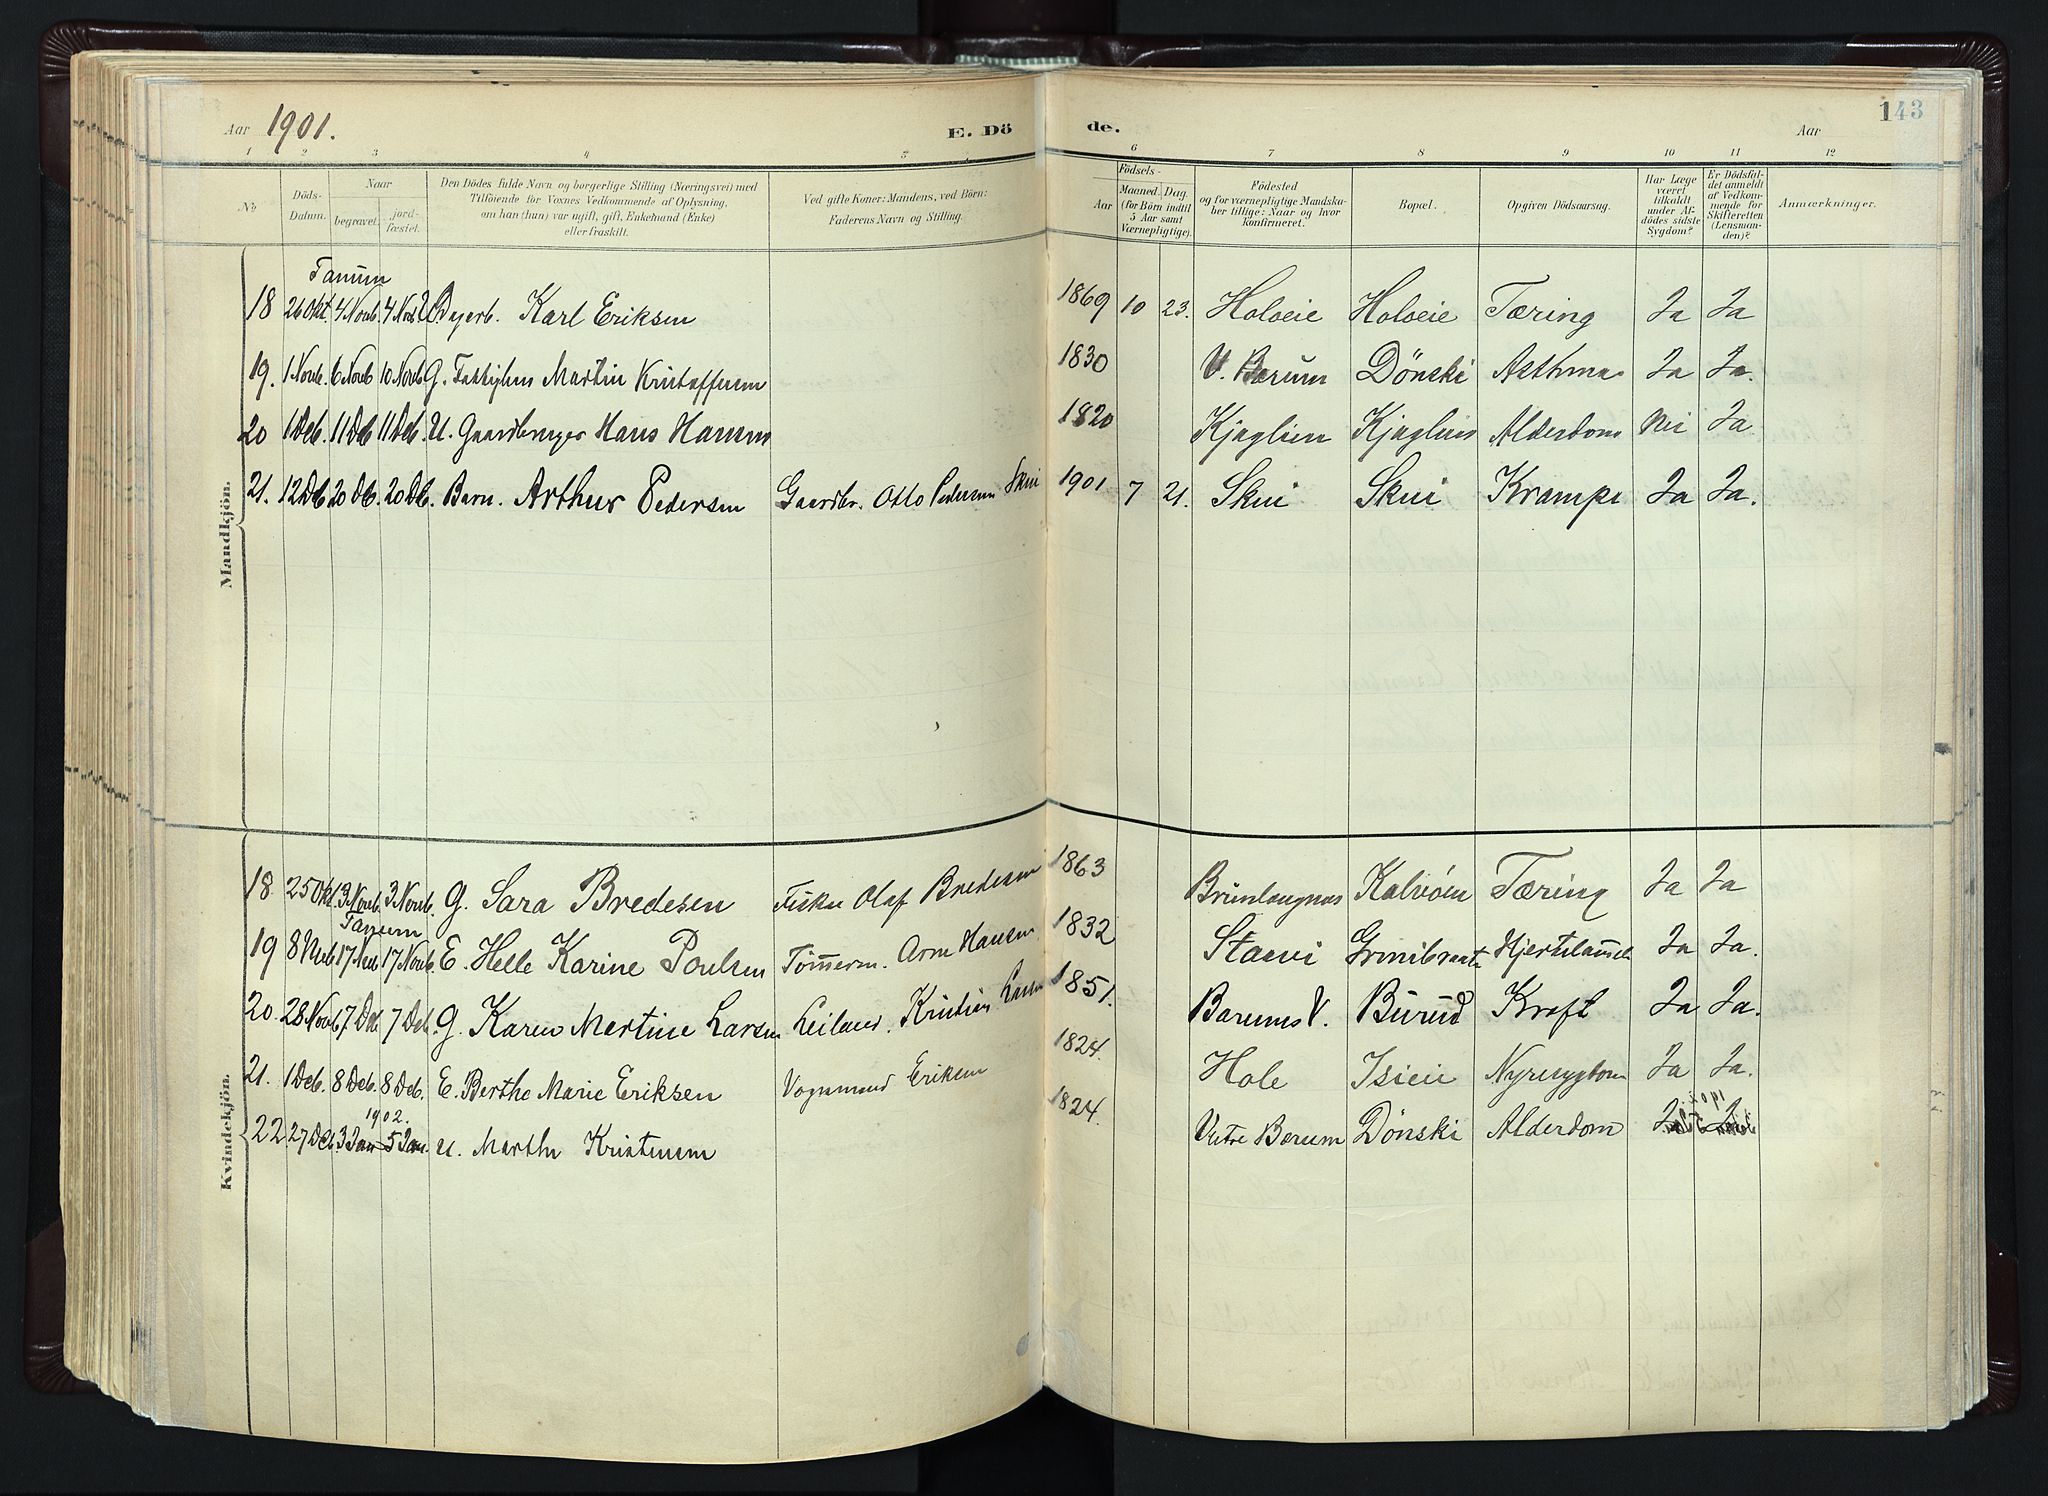 143
Aar 1901.
E. Dö de.
Aar
1 2 3 4 5 6 7 8 9 10 11 12
No
Döds-Datum.
Naar
begravet.
jord-fæstet.
Den Dödes fulde Navn og borgerlige Stilling (Næringsvei) med
Tilföiende for Voxnes Vedkommende af Oplysning,
om han (hun) var ugift, gift, Enkemand (Enke)
eller fraskilt.
Ved gifte Koner: Mandens, ved Börn:
Faderens Navn og Stilling.
Födsels-
Aar
Maaned. Dag.
(for Börn indtil
5 Aar samt
Værnepligtige).
Födested
og for værnepligtige Mandska-
ber tillige: Naar og hvor
konfirmeret.
Bopæl.
Opgiven Dödsaarsag.
Har Læge
været
tilkaldt
under Af-
dödes sidste
Sygdom?
Er Dödsfal-
det anmeldt
af Vedkom-
mende for
Skifteretten
(Lensman-
den)?
Anmærkninger.
Mandkjön.
Tanum
18 26 Okt. 4 Novb. 4 Nov. Karl Eriksen 1869 10 23. Holveie Holveie Tæring Ja Ja
19. 1 Novb. 6 Novb 10 Novb G. Martin Kristoffersen 1830 V. Bærum Dönski Asthma Ja Ja.
20 1 Deb. 11 Deb 11 Deb. U. Gaardbruger Hans Hansen 1820 Kjaglien Kjaglien Alderdom Nei Ja
21. 12 Db 20 Db. 20 Db. Barn. Arthur Pedersen Gaardbr. Otto Pedersen Skui 1901 7 21. Skui Skui Krampe Ja Ja.
Kvindekjön.
18 25 Okt. 3 Novb. 3 Novb. G. Sara Bredesen Fisker Olaf Bredesen 1863 Brunlangnæs Kalvöen Tæring Ja Ja
Tanum
19 8 Novb 17 Nov 17 Novb. E. Helle Karine Poulsen Tömmerm. Arne Hansen 1832 Grinibraaten Ja Ja.
20. 28 Novb 7. Deb 7 Deb. G. Karen Martine Larsen Leiland. Kristian Larsen 1851. Bærums V. Burud Kræft Ja Ja.
21. 1 Deb. 8 Deb. 8 Deb. E. Berthe Marie Eriksen Vognmand Eriksen 1824. Hole Isieie Nyresygdom Ja Ja.
1902.
22. 27 Deb. 3 Jan 5 Jan. U. Marthe Kristensen 1824. Vestre Bærum Dönski Alderdom Ja Ja